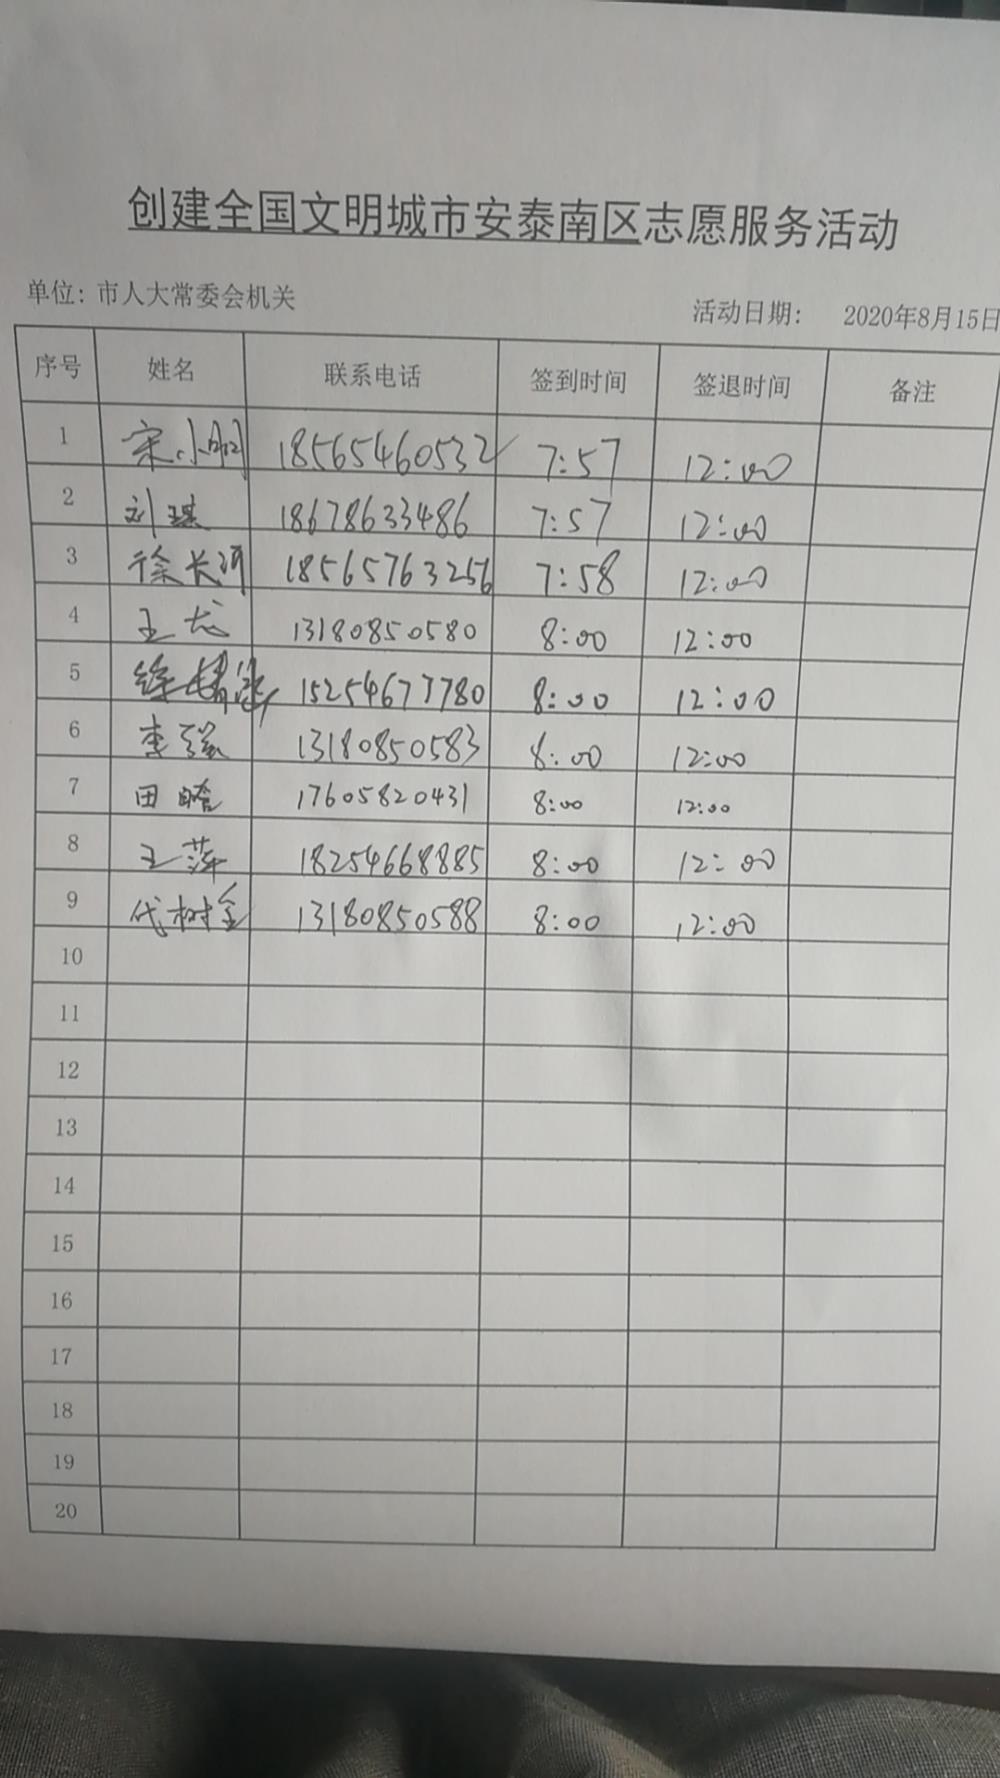 创建全国文明城市安泰南区志愿服务活动
单位：市人大常委会机关
活动日期： 2020年8月15日
序号 姓名 联系电话 签到时间 签退时间 备注
1 宋小明 18565460532 7:57 12:00
2 刘琪 18678633486 7:57 12:00
3 徐长河 18565763256 7:58 12:00
4 王龙 13180850580 8:00 12:00
5 15254673780 8:00 12:00
6 李强 13180850583 8:00 12:00
7 田晗 17605820431 8:00 12:00
8 王萍 18254668885 8:00 12:00
9 代树全 13180850588 8:00 12:00
10
11
12
13
14
15
16
17
18
19
20